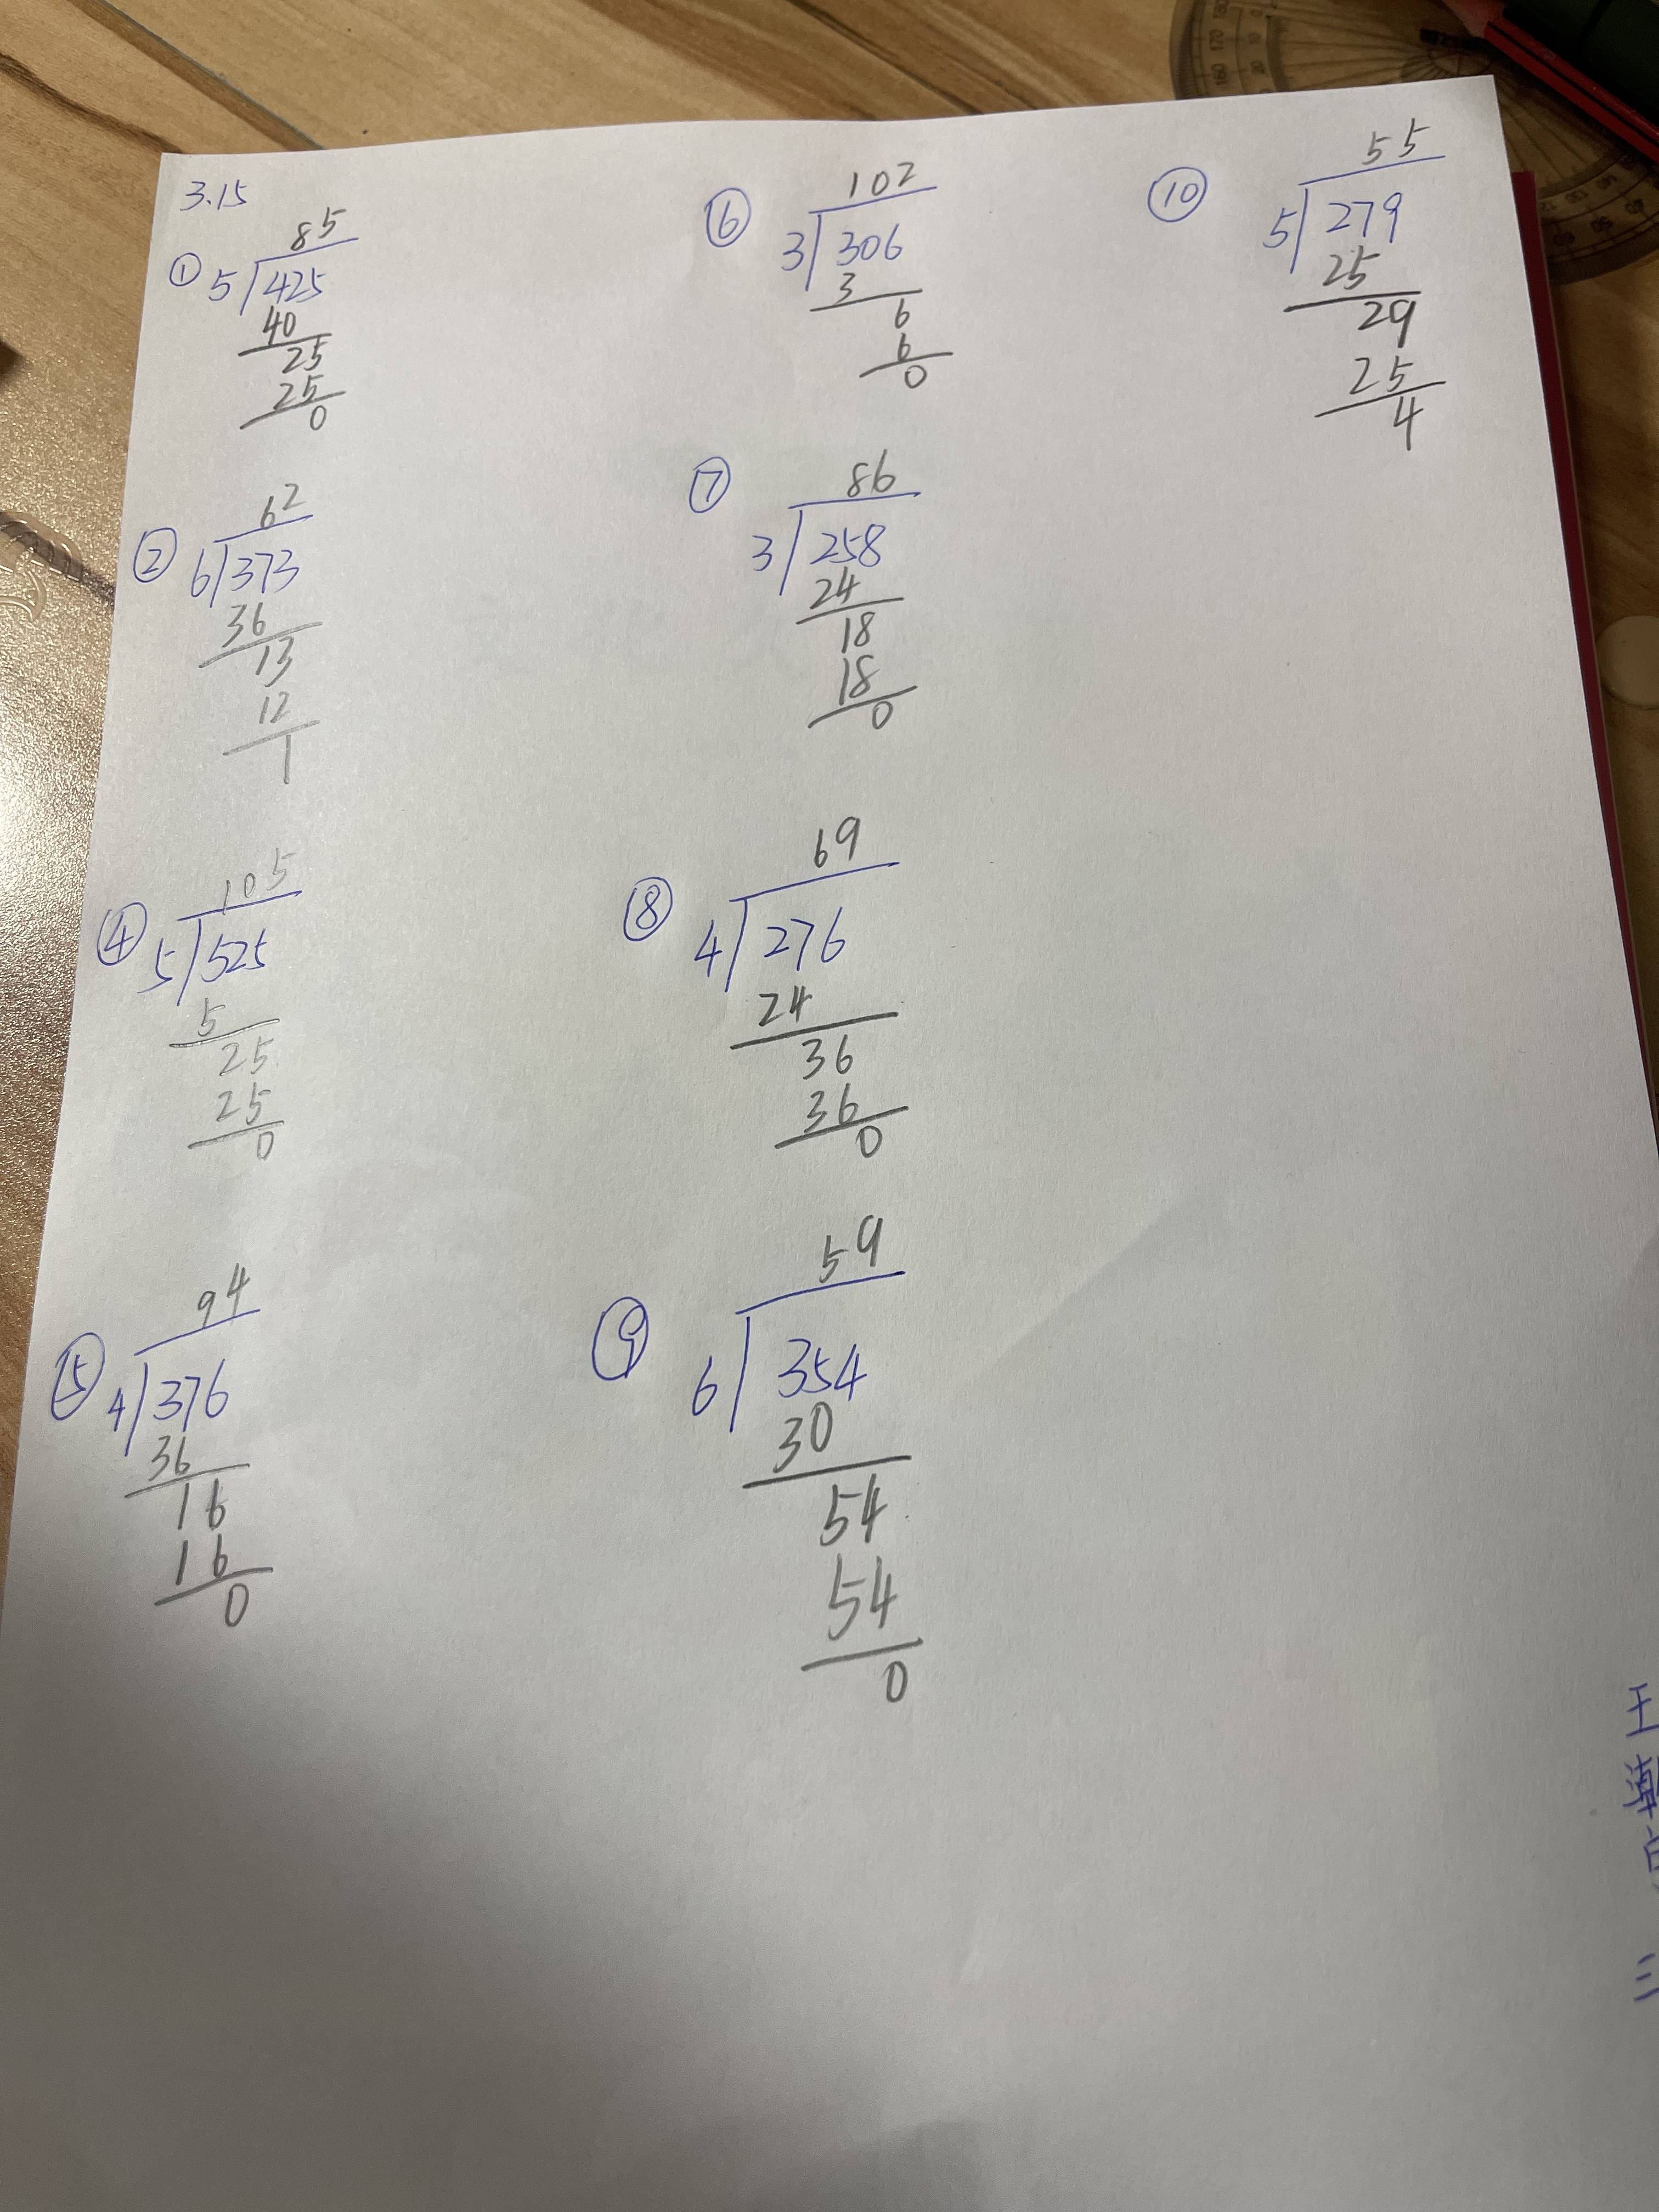 3.15
①
85
5 425
40
25
25
0
②
62
6 373
36
13
12
1
④
105
5 525
5
25
25
0
⑤
94
4 376
36
16
16
0
⑥
102
3 306
3
6
6
0
⑦
86
3 258
24
18
18
0
⑧
69
4 276
24
36
36
0
⑨
59
6 354
30
54
54
0
⑩
55
5 279
25
29
25
4
王
三